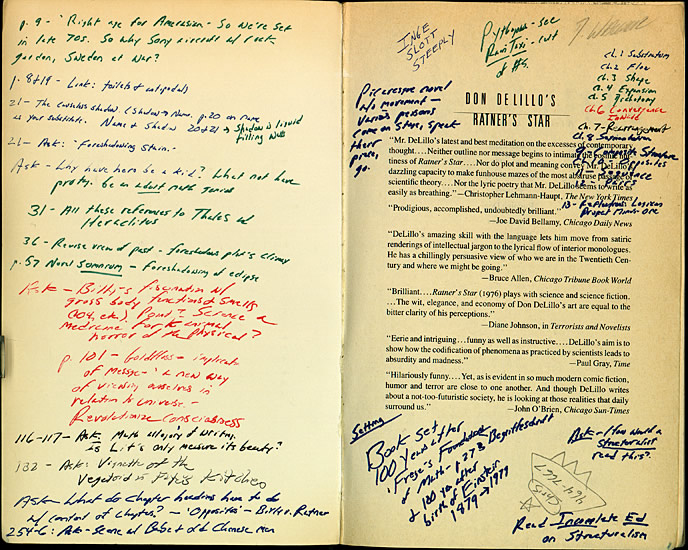 p. 9 - 'Right age for Amerasian - So we're set
in late 70s. So why Sony aircraft w/ rock
garden, Sweden at War?
p. 8+19 - Link: toilets +
21 - The ceaseless shadow (Shadow = Name. p.20 on name
as your substitute. Name + Shadow 20+21 → Shadow is liquid
filling
21 - Ask: 'Foreshadowing stain.
Ask - Why have hero be a kid? What not have
protg. be an adult math genius
31 - All these references to Thales w/
Heraclitus
36 - Revise view of past - foreshadows plot's climax
p. 57 Nord Somnium - Foreshadowing of eclipse
Ask - Billy's fascination w/
gross body functions + smells
(104, etc). Point? Science a
medicine for the animal
horror of the physical?
p. 101 - Goldfloss - implicate
of message - 'a new way
of viewing ourselves in
relation to universe -
Revolutionize consciousness
116-117 - Ask. Math allegory of writing.
is Lit's only measure its beauty?
132 - Ask: Vignette of the
in Kitchen
Ask - What do chapter headings have to do
w/ content of chapters? - 'Opposites' - Bitter-Ratner
254-6: Ask - Scene w/ Babe + old Chinese man
INGE
SLOTT
STEEPLY
Pythagoras - see
Rami Taxi - cult
of #s.
Picaresque novel
w/o movement -
Various persons
come on stage, speak
their
piece,
go.
Ch. 1 Substratum
Ch. 2 Flow
Ch. 3 Shape
Ch. 4 Expansion
Ch. 5 Dichotomy
Ch. 6 Convergence
Inward
Ch. 7 - Rearrangement
Ch. 8 Segmentation
9 Composite Structure
10 Opposites
11 Sequence
12 Pairs
13 - Replustronic Logicon
Project Minus-One
DON DELILLO'S
RATNER'S STAR
"Mr. DeLillo's latest and best meditation on the excesses of contemporary
thought.... Neither outline nor message begins to intimate the
tiness of Ratner's Star.... Nor do plot and meaning convey Mr. DeLillo's
dazzling capacity to make funhouse mazes of the most abstruse passages of
scientific theory.... Nor the lyric poetry that Mr. DeLillo seems to write as
easily as breathing."—Christopher Lehmann-Haupt, The New York Times
"Prodigious, accomplished, undoubtedly brilliant."
—Joe David Bellamy, Chicago Daily News
"DeLillo's amazing skill with the language lets him move from satiric
renderings of intellectual jargon to the lyrical flow of interior monologues.
He has a chillingly persuasive view of who we are in the Twentieth Cen-
tury and where we might be going."
—Bruce Allen, Chicago Tribune Book World
"Brilliant.... Ratner's Star (1976) plays with science and science fiction.
...The wit, elegance, and economy of Don DeLillo's art are equal to the
bitter clarity of his perceptions."
—Diane Johnson, in Terrorists and Novelists
"Eerie and intriguing...funny as well as instructive.... DeLillo's aim is to
show how the codification of phenomena as practiced by scientists leads to
absurdity and madness."
—Paul Gray, Time
"Hilariously funny.... Yet, as is evident in so much modern comic fiction,
humor and terror are close to one another. And though DeLillo writes
about a not-too-futuristic society, he is looking at those realities that daily
surround us."
—John O'Brien, Chicago Sun-Times
Setting
Book set
100 years after
'Frege's Foundation
of Math - p 273 Begriffsschrift
+ 100 yrs after
birth of Einstein
1879 → 1979
Ask - How would a
structuralist
read this?
Chris
464-7647
Read Incomplete Ed
on Structuralism